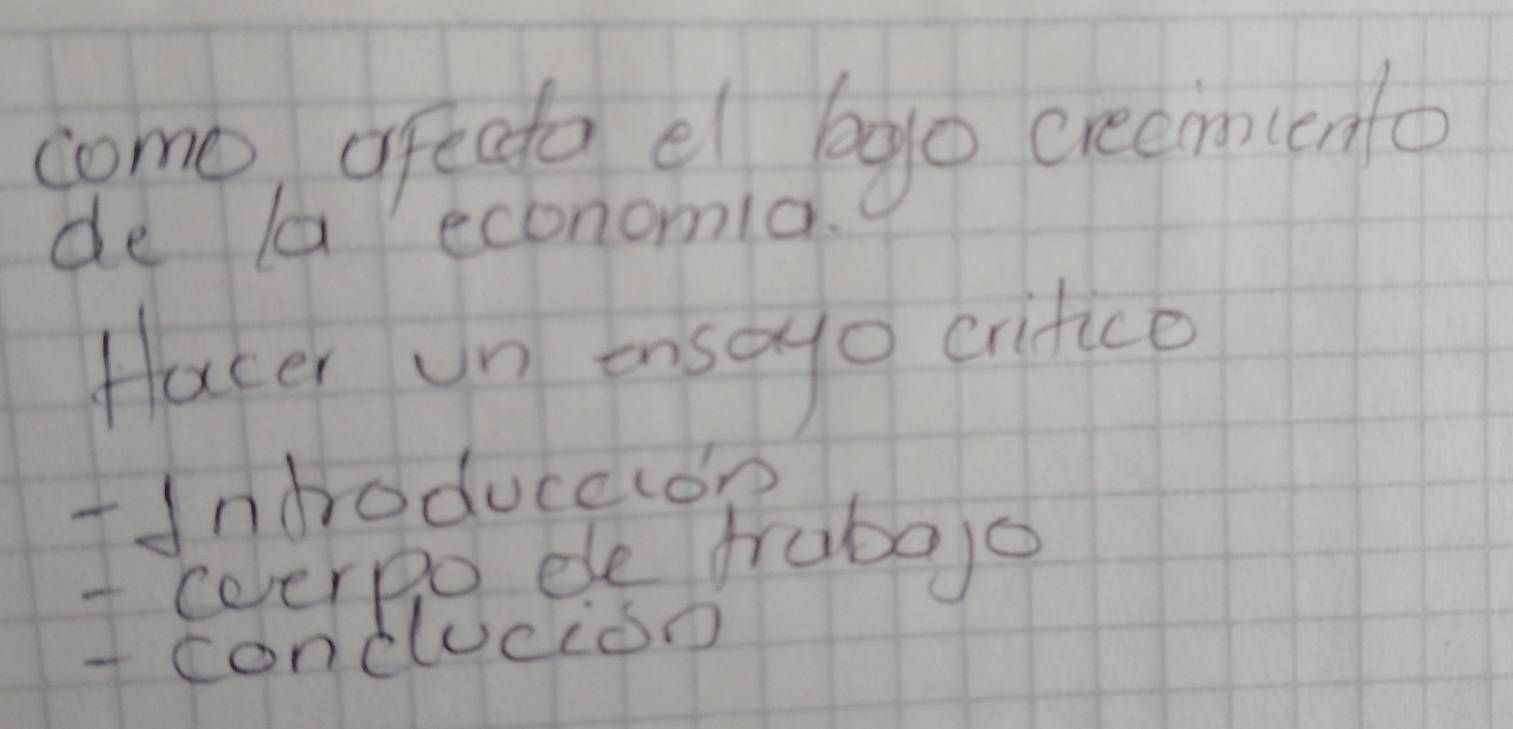 como afecta el bajo crecimiento
de la economia.
Hacer un ensayo critico
- Introducción
- cuerpo de trabajo
- conclución